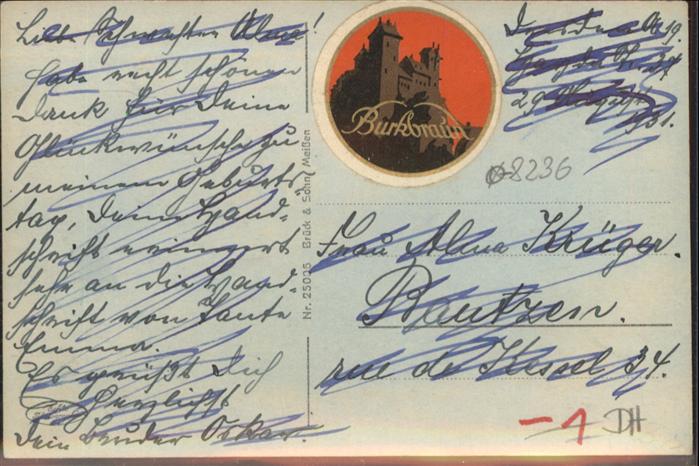 Liebe Schwester Alma!
habe recht schönen
Dank für Deine
Glückwünsche zu
meinem Geburts-
tag, Deine Hand-
schrift erinnert
sehr an die Hand
schrift von Tante
Emma.
Es grüßt Dich
Herzlichst
Dein Bruder Oskar.
Nr. 25005 Brück & Sohn, Meißen
Burkbraun
Dresden 19
29 August
1931.
8236
Frau Alma Krüger.
Bautzen.
rue de Kessel 34.
-1 DH